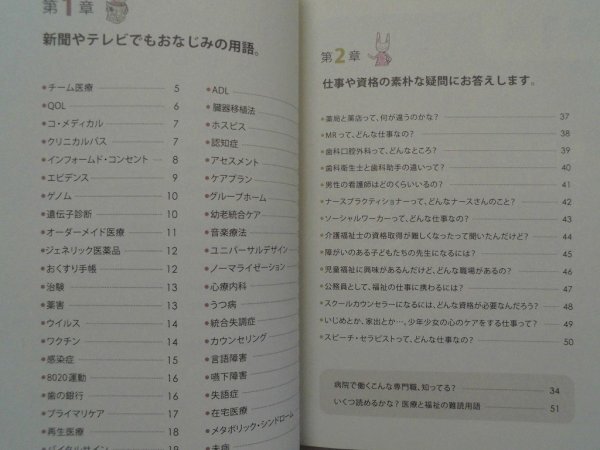 第1章
新聞やテレビでもおなじみの用語。
●チーム医療 5
●QOL 6
●コ・メディカル 7
●クリニカルパス 7
●インフォームド・コンセント 8
●エビデンス 9
●ゲノム 10
●遺伝子診断 10
●オーダーメイド医療 11
●ジェネリック医薬品 12
●おくすり手帳 12
●治験 13
●薬害 13
●ウイルス 14
●ワクチン 14
●感染症 15
●8020運動 16
●歯の銀行 16
●プライマリケア 17
●再生医療 18
●バイタルサイン
●ADL
●臓器移植法
●ホスピス
●認知症
●アセスメント
●ケアプラン
●グループホーム
●幼老統合ケア
●音楽療法
●ユニバーサルデザイン
●ノーマライゼーション
●心療内科
●うつ病
●統合失調症
●カウンセリング
●言語障害
●嚥下障害
●失語症
●在宅医療
●メタボリック・シンドローム
●未病
第2章
仕事や資格の素朴な疑問にお答えします。
●薬局と薬店って、何が違うのかな? 37
●MRって、どんな仕事なの? 38
●歯科口腔外科って、どんなところ? 39
●歯科衛生士と歯科助手の違いって? 40
●男性の看護師はどのくらいいるの? 41
●ナースプラクティショナーって、どんなナースさんのこと? 42
●ソーシャルワーカーって、どんな仕事なの? 43
●介護福祉士の資格取得が難しくなったって聞いたんだけど? 44
●障がいのある子どもたちの先生になるには? 45
●児童福祉に興味があるんだけど、どんな職場があるの? 46
●公務員として、福祉の仕事に携わるには? 47
●スクールカウンセラーになるには、どんな資格が必要なんだろう? 48
●いじめとか、家出とか…。少年少女の心のケアをする仕事って? 49
●スピーチ・セラピストって、どんな仕事なの? 50
病院で働くこんな専門職、知ってる? 34
いくつ読めるかな? 医療と福祉の難読用語 51